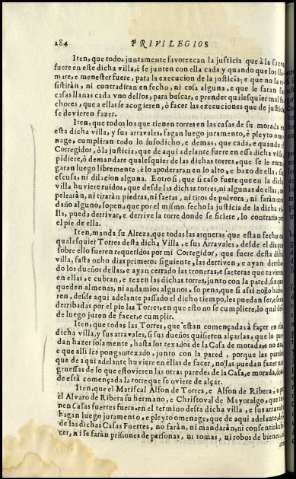 284 PRIVILEGIOS
Iten, que todos juntamente favorezcan la justicia que à la
fuere en este dicha villa, è se junten con ella cada y quando que los
mare, e menester fuere, para la execucion de la justicia; e que no la
sistiràn, ni contradiràn en fecho, ni cosa alguna, e que le faràn
casas llanas cada vno dellos, para buscar, e prender qualesquier
chores, que a ellas se acogieren, ò facer las execuciones que de justicia
se devieren facer.
Iten, que todos los que tienen torres en las casas de su morada
esta dicha villa, y sus arravales, fagan luego juramento, è pleyto
nage, cumpliràn todo lo susodicho, e demàs, que cada, e quando
Corregidor, ò la justicia, que de aqui adelante fuere en esta dicha villa
pidiere, ò demandare qualesquier de las dichas torres, que se le
garàn luego libremente, è lo apoderaràn en lo alto, e baxo de ellas,
escusa, ni dilacion alguna. E otrosi, que si caso fuere que en la
villa huviere ruidos, que desde las dichas torres, ni algunas de ellas,
pelearàn, ni tiraràn piedras, ni saetas, ni tiros de polvora, ni faràn
daño alguno, sopen, que por el mismo fecho la justicia de la dicha
lla, pueda derrivar, e derrive la torre donde se ficiere, lo contrario
el pie de ella.
Iten, manda su Alteza, que todas las arqueras que estàn fechas
qualesquier Torres desta dicha Villa, e sus Arravales, desde el dia
sobre ello fueren requeridos por mi Corregidor, que fuere desta dicha
villa, fasta ocho dias primeros siguiente, las derriven, e ayan
do los dueños de llas, e ayan cerrado las troneras, e saeteras que
en ellas, e cubran, e texen las dichas torres, junto con la pared, sin que
queden almenas, ni andamios algunos, so pena, que si assi
ren, desde aqui adelante passado el dicho tiempo, les puedan ser,
derribadas por el pie las Torres, en que esto no se cumpliere, lo qual
de luego juren de facer, e cumplir.
Iten, que todas las Torres, que estàn començadas à façer en
dicha villa, y sus arravales, si sus dueños quisieren alçarlas, que lo
dan hazer solamente, hasta los texados de la Casa de morada,
e que alli les ponga tejado, junto con la pared, porque las
que de aqui adelante huviere en ellas de facer, no las puedan
gruessas de lo que estovieren las otras paredes de la Casa, e morada,
de està començada la torre que se oviere de alçar.
Iten, que el Mariscal Alfon de Torres, e Alfon de Ribera,
el Alvaro de Ribera su hermano, e Christoval de Mayoralgo, que
nen Casas fuertes fuera, en el termino desta dicha villa, e sus
fagan luego juramento, e pleyto omenage, que de aqui adelante
de las dichas Casas Fuertes, no faràn, ni mandaràn, ni consentiràn
cer, ni se faràn prisiones de personas, ni tomas, ni robos de bienes